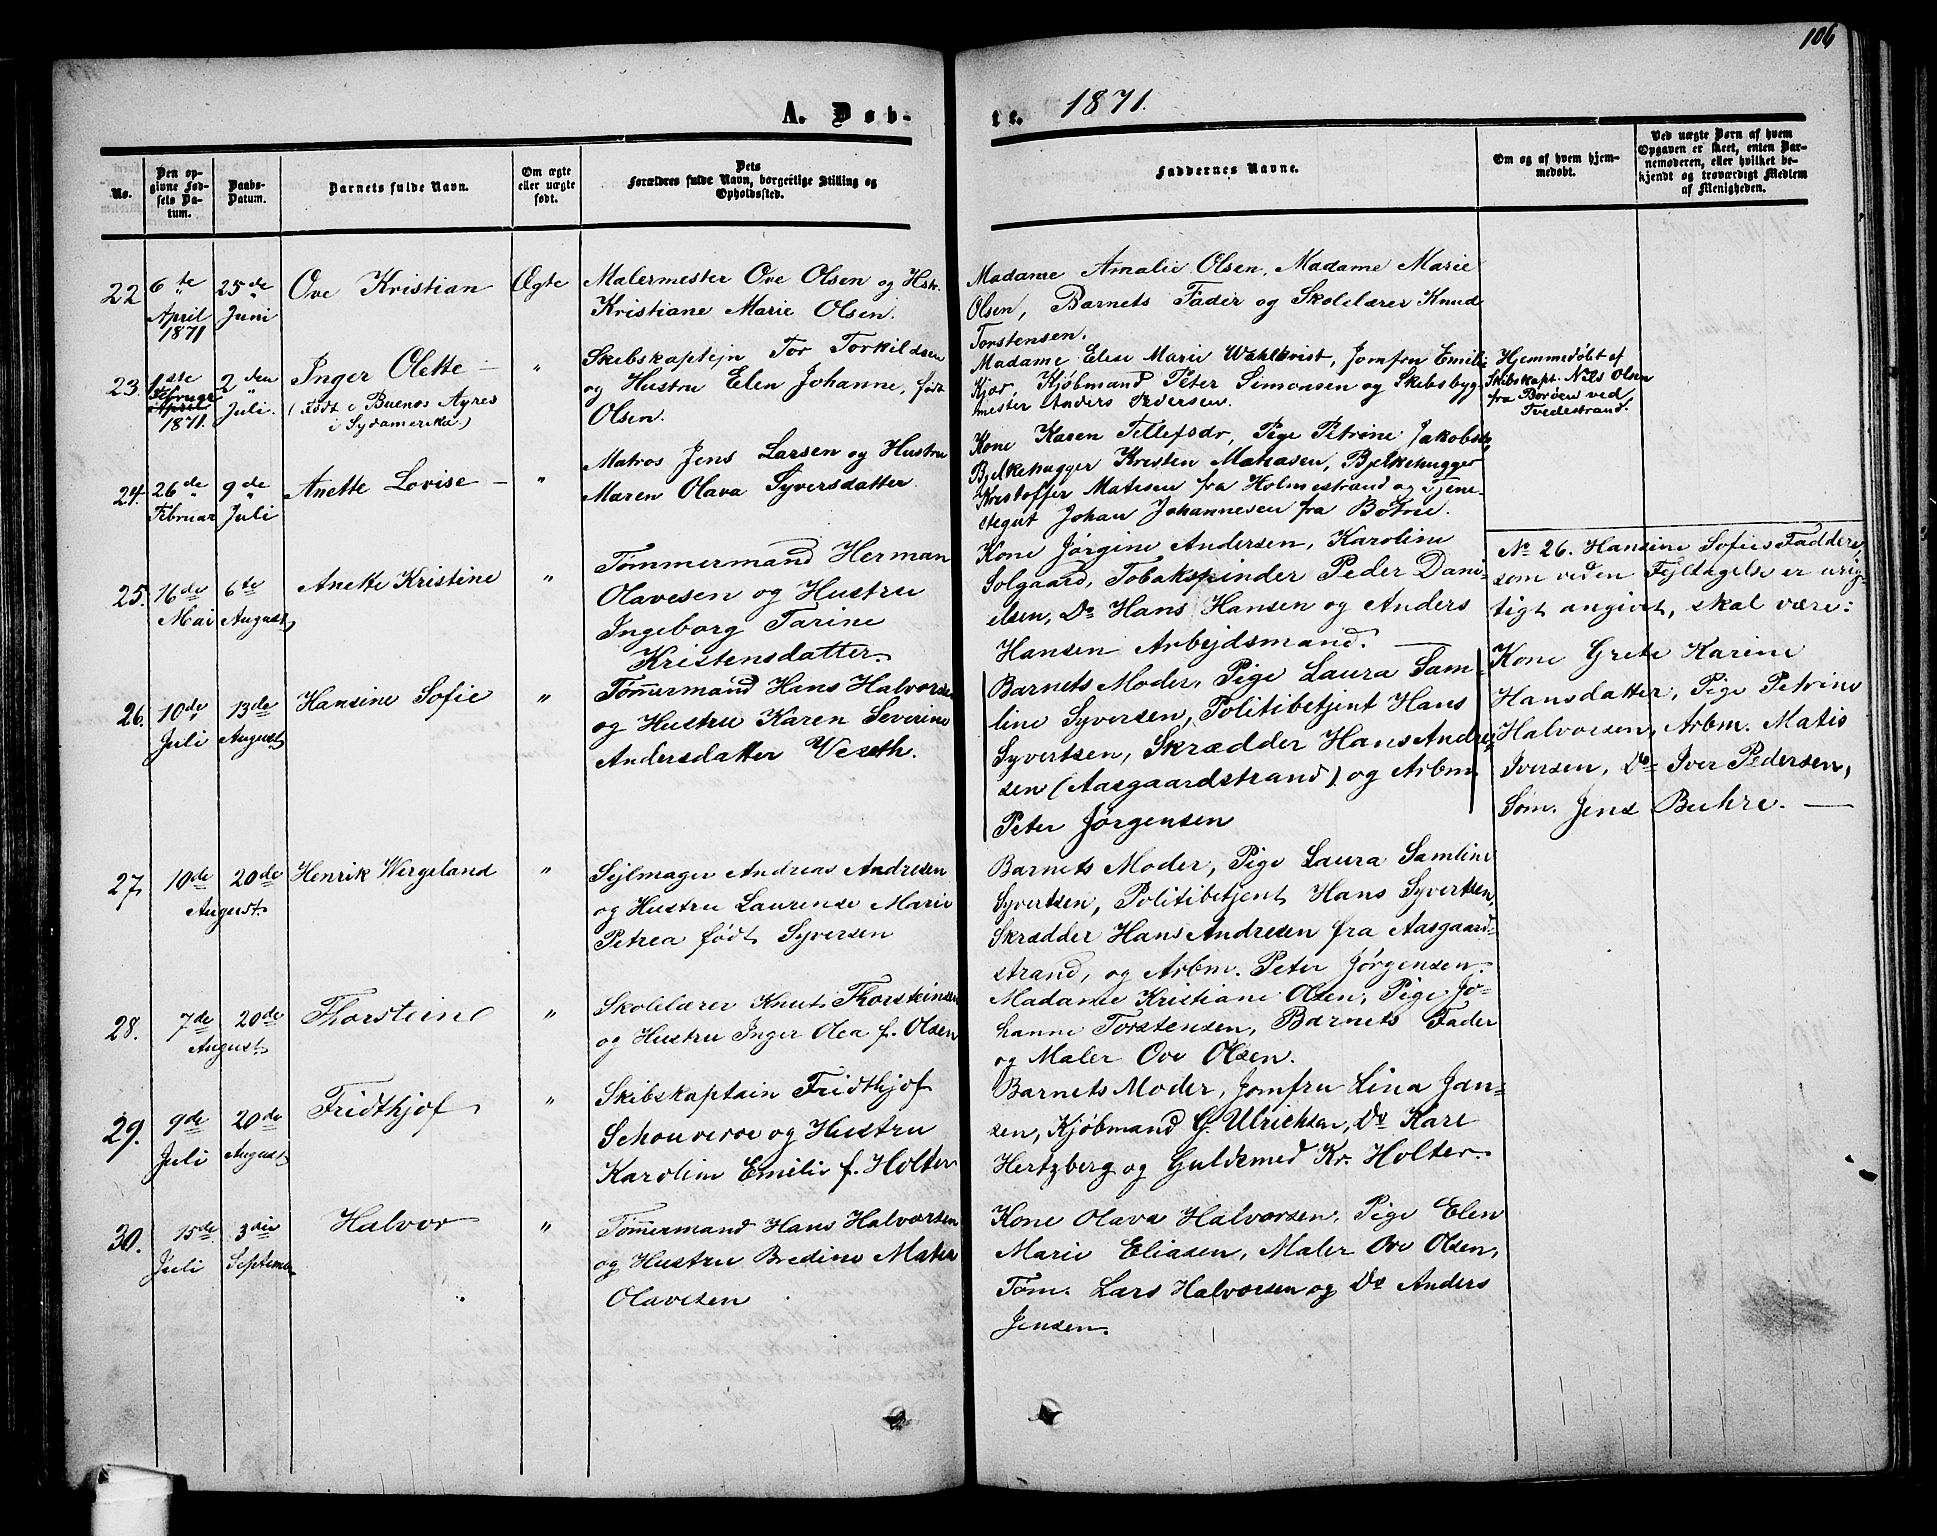 106
A. Døb-
te. 1871.
No.
Den opgivne Fødsels Datum.
Daabs-Datum.
Barnets fulde Navn.
Om ægte eller uægte født.
Dets Forældres fulde Navn, borgerlige Stilling og Opholdssted.
Faddernes Navne.
Om og af hvem hjemmedøbt.
Ved uægte Børn af hvem Opgaven er skeet, enten Barnemoderen, eller hvilket bekjendt og troværdigt Medlem af Menigheden.
22
6te April 1871
25de Juni
Ove Kristian
Ægte
Malermester Ove Olsen og Hstr.
Kristiane Marie Olsen.
Madame Amalie Olsen, Madame Marie
Olsen, Barnets Fader og Skolelærer Knud
Torstensen.
23.
1ste Februar 1871.
2den Juli.
Inger Olette —
(Født i Buenos Ayres
i Sydamerika)
"
Skibskaptejn Tor Torkildsen
og Hustru Elen Johanne, født
Olsen.
Madame Elise Marie Wahlkvist, Jomfru Emilie
Kjær, Kjøbmand Peter Simonsen og Skibsbyg-
mester Anders Pedersen.
Hjemmedøbt af
Skibskapt. Nils Olsen
fra Borøen ved
Tvedestrand.
24.
26de Februar
9de Juli
Anette Lovise —
"
Matros Jens Larsen og Hustru
Maren Olava Syversdatter.
Kone Karen Tellefsdr, Pige Petrine Jakobsdr,
Bjelkehugger Kristen Matiasen, Bjelkehugger
Kristoffer Matisen fra Holmestrand og Tjene-
stegut Johan Johannesen fra Botne.
25.
16de Mai
6te August
Anette Kristine
"
Tømmermand Herman
Olavesen og Hustru
Ingeborg Tarine
Kristensdatter.
Kone Jørgine Andersen, Karoline
Solgaard, Tobakspinder Peder Dani-
elsen, Do Hans Hansen og Anders
Hansen Arbejdsmand. —
No 26. Hansine Sofies Faddere,
som veden Fejltagelse er urig-
tigt angivet, skal være:
Kone Grete Karine
Hansdatter, Pige Petrine
Halvorsen, Arbm. Matis
Iversen, Do Iver Pedersen,
Tøm. Jens Buhre. —
26.
10de Juli
13de August
Hansine Sofie
"
Tømmermand Hans Halvorsen
og Hustru Karen Severine
Andersdatter Veseth.
Barnets Moder, Pige Laura Sam-
line Syversen, Politibetjent Hans
Syvertsen, Skrædder Hans Andre-
sen (Aasgaardstrand) og Arbm.
Peter Jørgensen
27
10de August
20de
Henrik Wergeland
"
Sejlmager Andreas Andresen
og Hustru Laurense Marie
Petrea født Syversen
Barnets Moder, Pige Laura Samline
Syvertsen, Politibetjent Hans Syvertsen,
Skrædder Hans Andresen fra Aasgaard-
strand, og Arbm. Peter Jørgensen.
28.
7de August
20de
Thorstein
"
Skolelærer Knut Thorsteinsen
og Hustru Inger Olea f. Olsen
Madame Kristiane Olsen, Pige Jo-
hanne Torstensen, Barnets Fader
og Maler Ove Olsen.
29.
9de Juli
20de August
Fridthjof
"
Skibskaptain Fridthjof
Schouveroe og Hustru
Karoline Emilie f. Holter
Barnets Moder, Jomfru Lina Jan-
sen, Kjøbmand G. Ulrichsen, Do Karl
Hertzberg og Guldsmed Kr. Holter.
30.
15de Juli
3die September
Halvor
"
Tømmermand Hans Halvorsen
og Hustru Bredine Matea
Olavesen
Kone Olava Halvorsen, Pige Elen
Marie Eliasen, Maler Ove Olsen,
Tøm. Lars Halvorsen og Do Anders
Jensen.